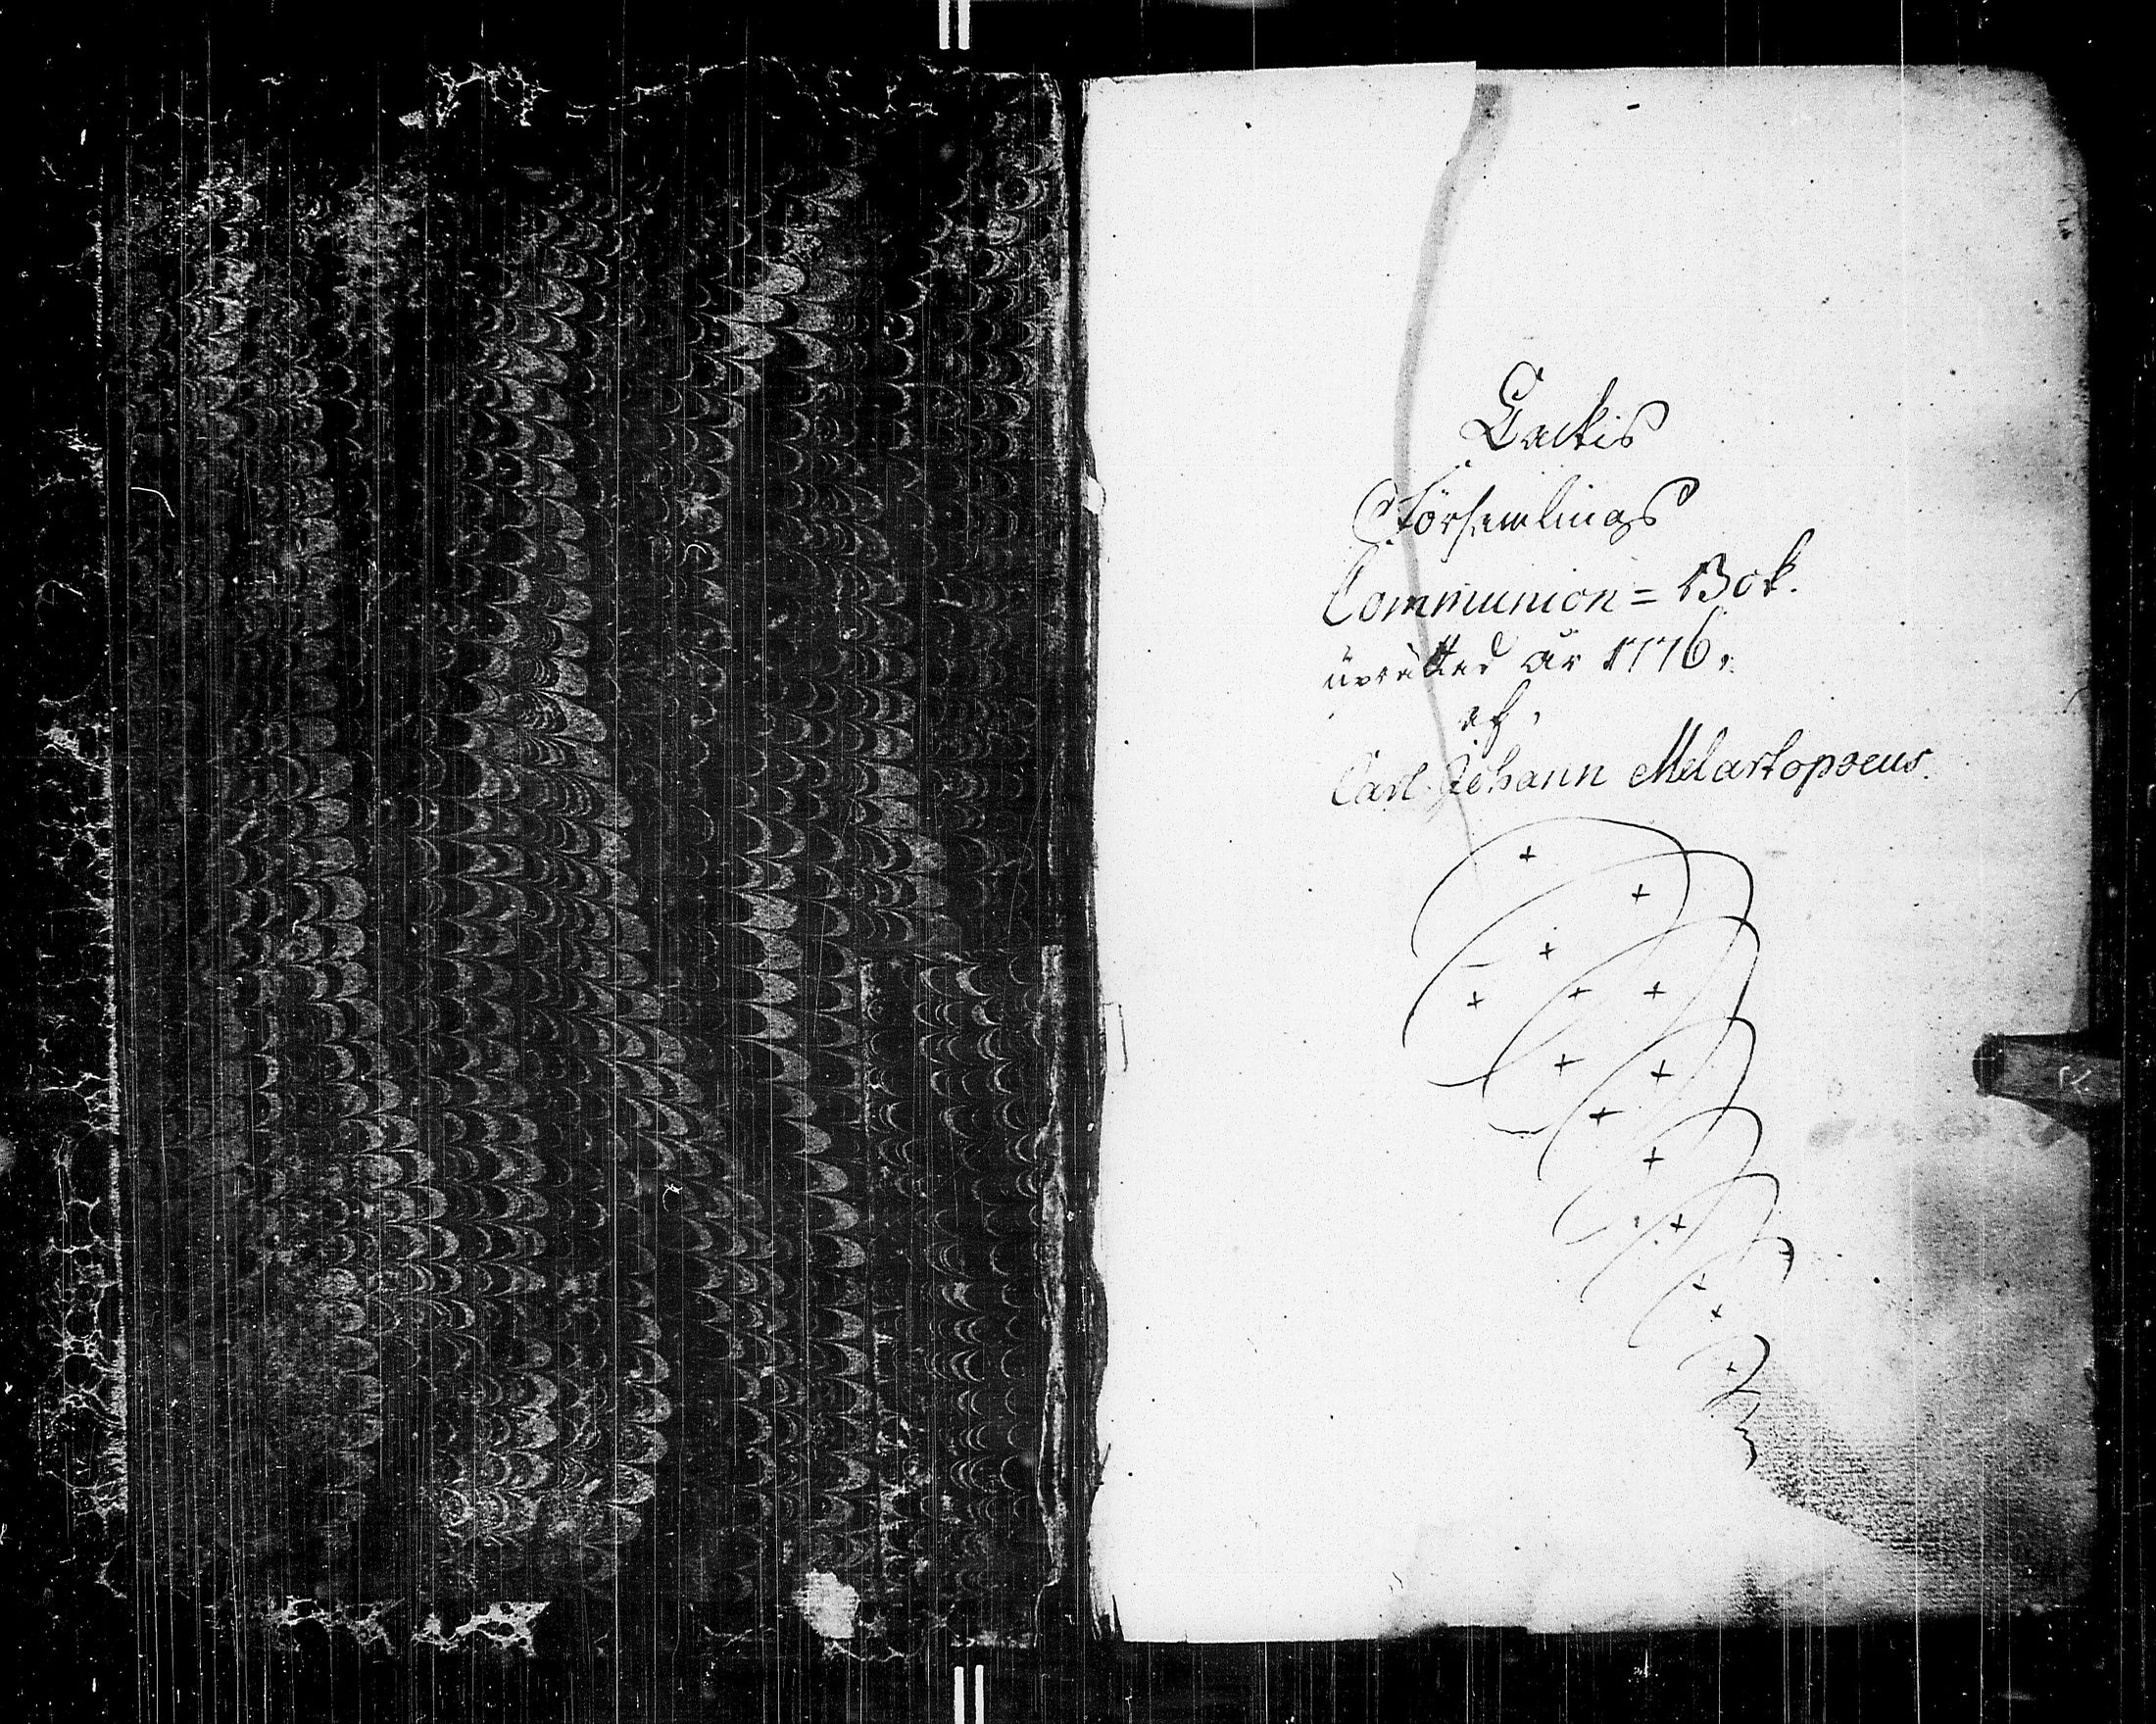 Lackis
Församlings
Communion = Bok.
uprättad år 1776.
af,
Carl Johann Melartopæus.